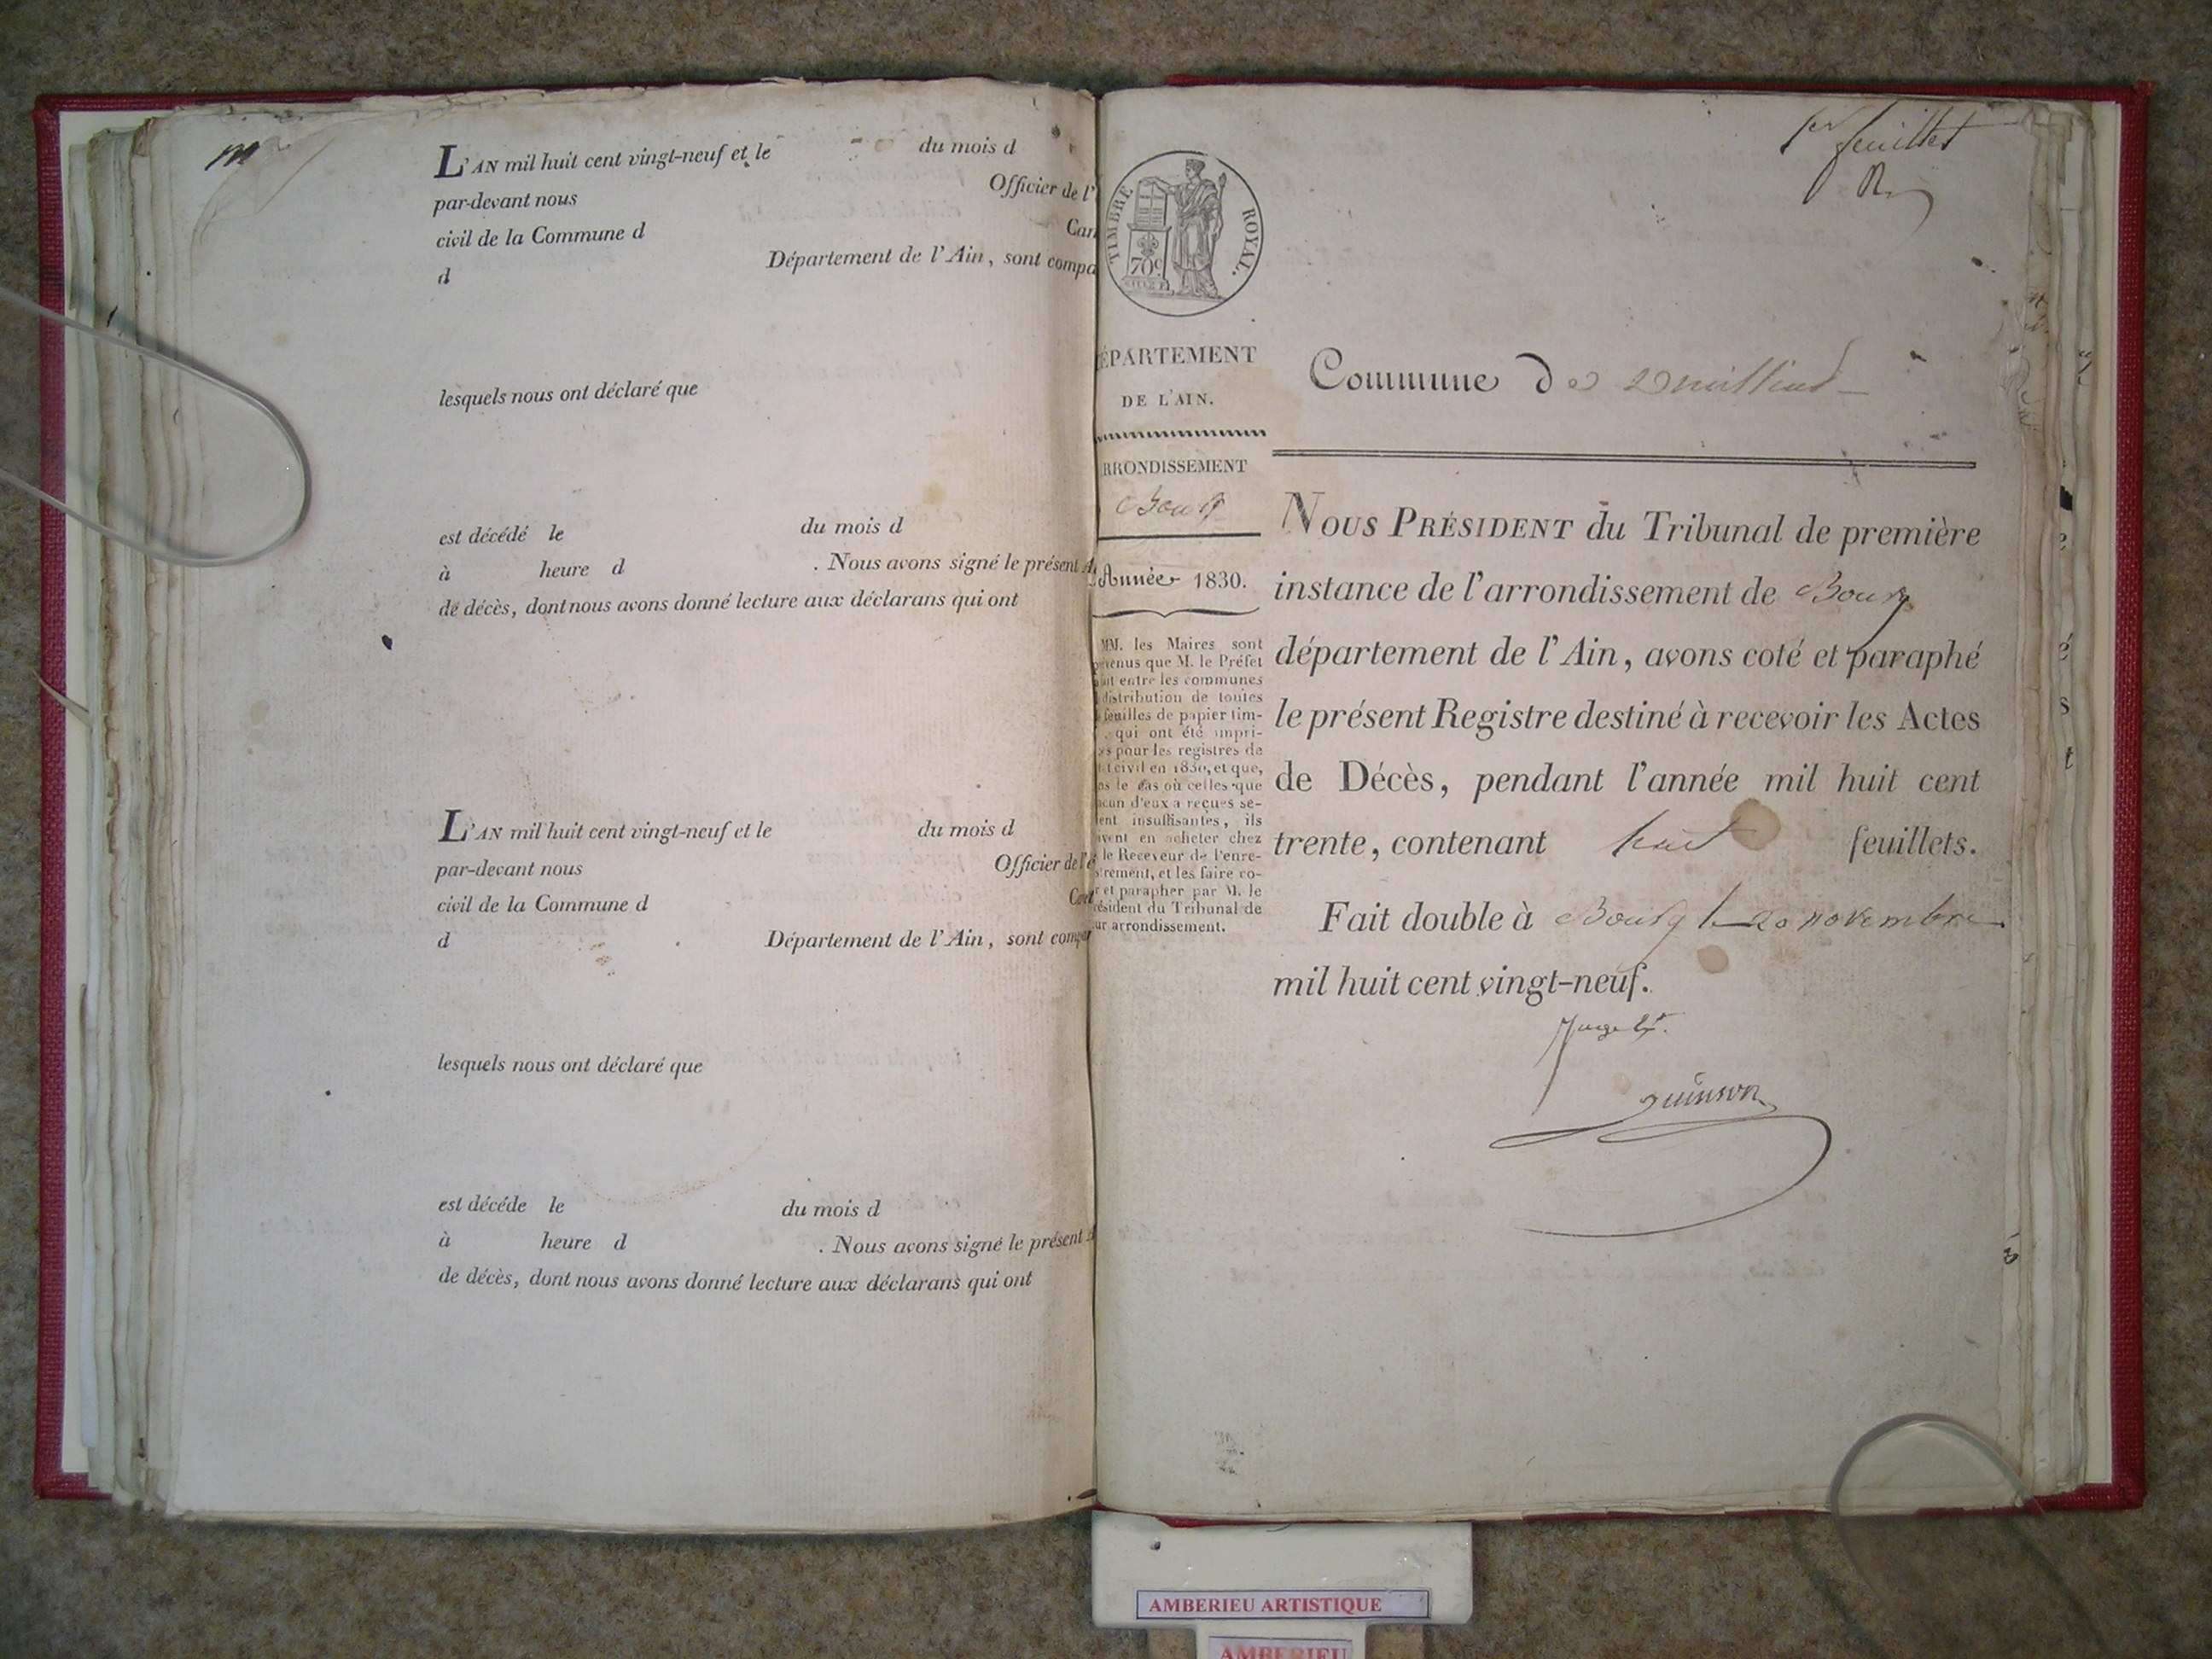 L'AN mil huit cent vingt-neuf et le du mois d
par-devant nous Officier de l'
civil de la Commune d Can
d Département de l'Ain, sont compa
lesquels nous ont déclaré que
est décédé le du mois d
à heure d . Nous avons signé le présent A
de décès, dont nous avons donné lecture aux déclarans qui ont
L'AN mil huit cent vingt-neuf et le du mois d
par-devant nous Officier de l'é
civil de la Commune d Can
d Département de l'Ain, sont compa
lesquels nous ont déclaré que
est décéde le du mois d
à heure d . Nous avons signé le présent A
de décès, dont nous avons donné lecture aux déclarans qui ont
1er feuillet
TIMBRE ROYAL.
70c
ÉPARTEMENT
DE L'AIN.
RRONDISSEMENT
Bourg
Année 1830.
MM. les Maires sont
venus que M. le Préfet
ait entre les communes
distribution de toutes
feuilles de papier tim-
qui ont été impri-
s pour les registres de
t civil en 1830, et que,
s le cas où celles que
acun d'eux a reçues se-
ent insuffisantes, ils
ivent en acheter chez
le Receveur de l'enre-
strement, et les faire co-
r et parapher par M. le
résident du Tribunal de
ur arrondissement.
Commune de
NOUS PRÉSIDENT du Tribunal de première
instance de l'arrondissement de Bourg
département de l'Ain, avons coté et paraphé
le présent Registre destiné à recevoir les Actes
de Décès, pendant l'année mil huit cent
trente, contenant huit feuillets.
Fait double à Bourg le 20 novembre
mil huit cent vingt-neuf.
AMBERIEU ARTISTIQUE
AMBERIEU